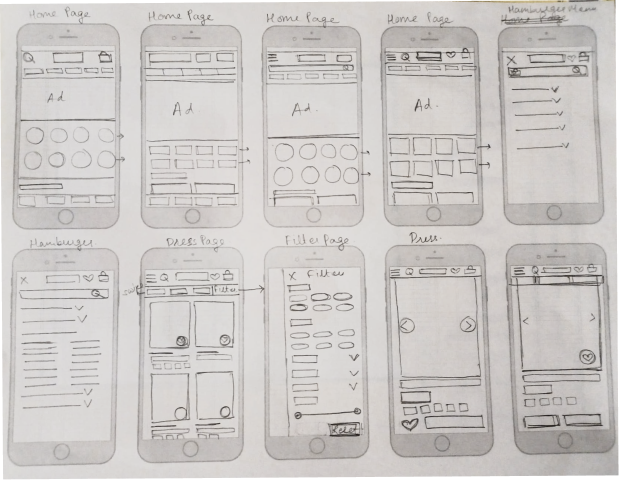 Home Page
Home Page
Home Page
Home Page
Hamburger Menu
Home Page
Ad.
Ad.
Ad.
Ad.
Hamburger
Dress Page
Filter Page
Dress.
Filter
X Filter
Reset